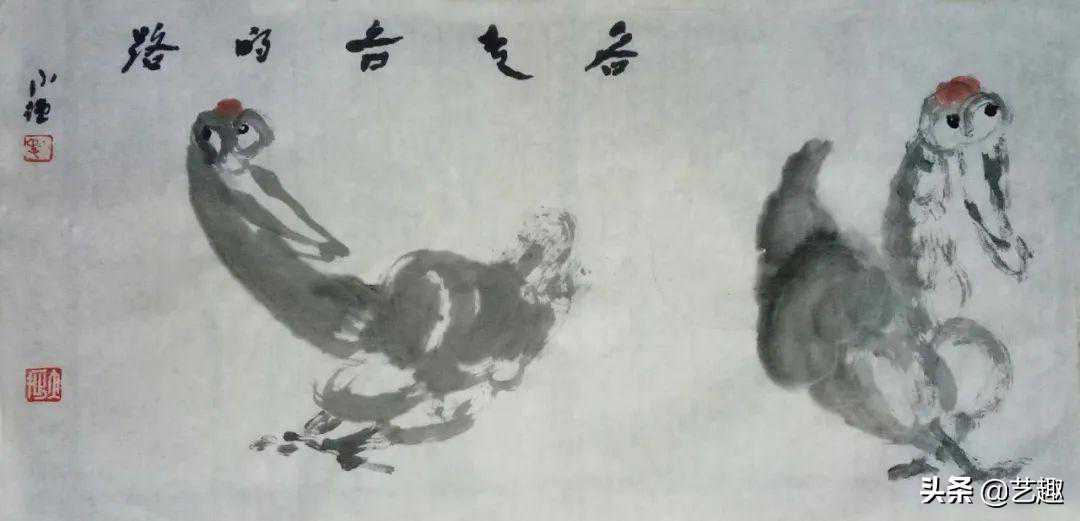 各走各的路
头条 @艺趣